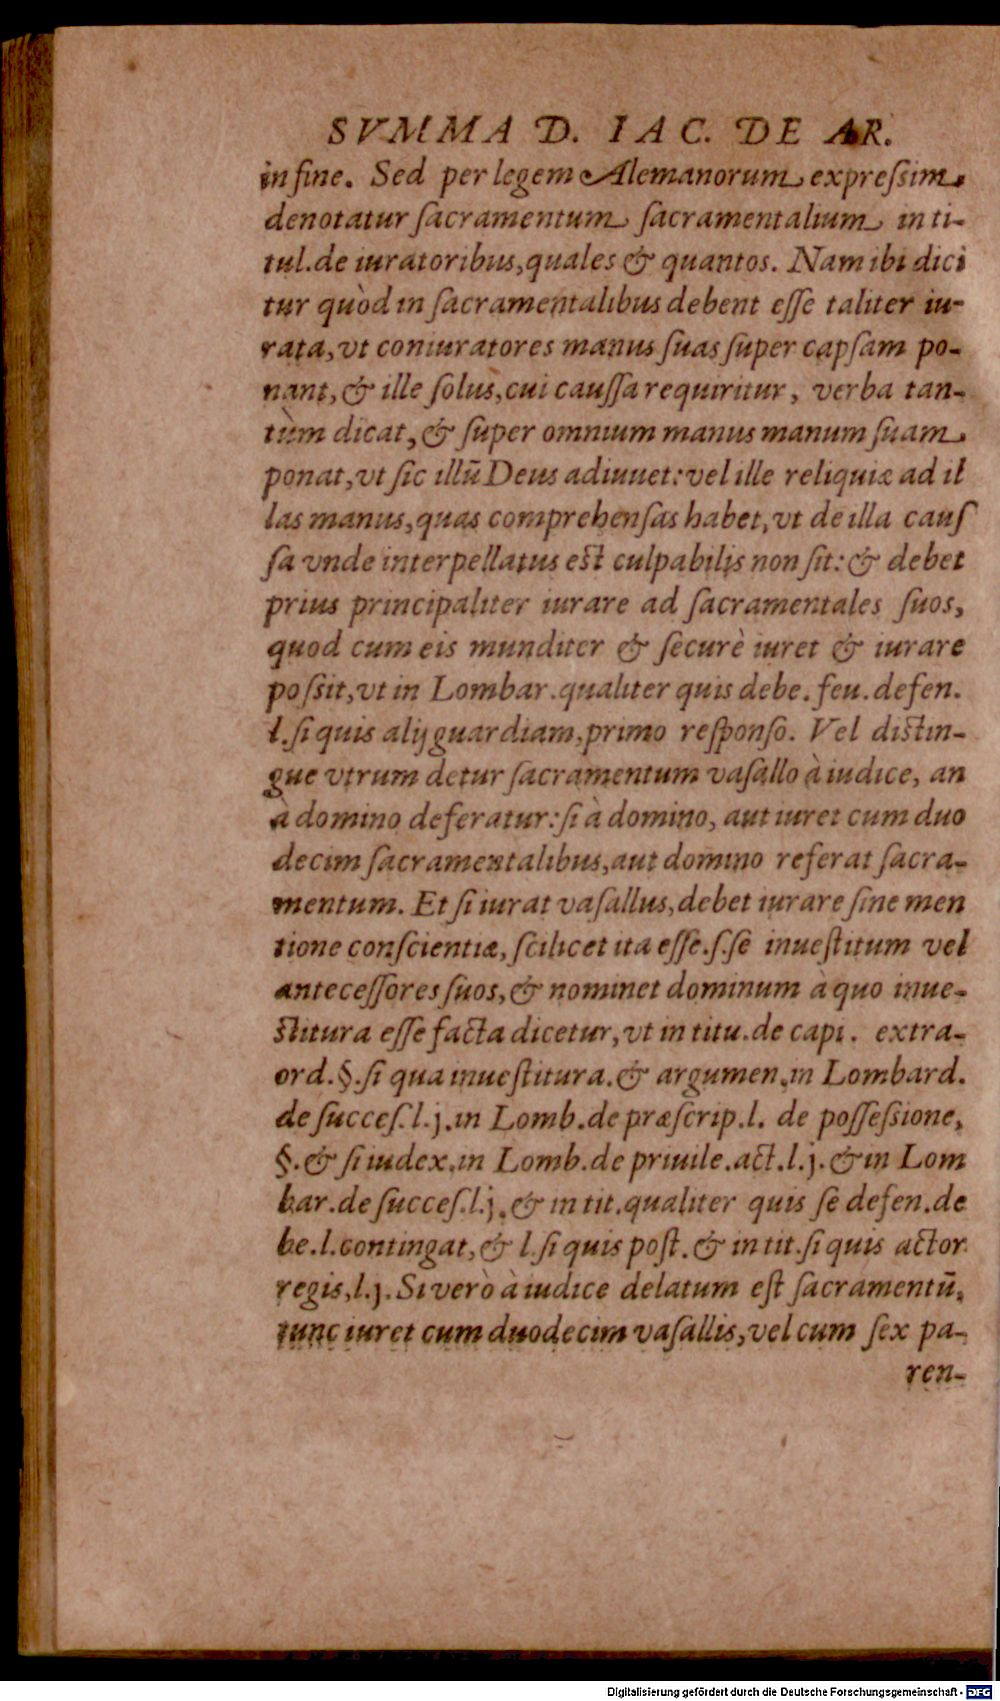 SVMMA D. IAC. DE AR.
in fine. Sed per legem Alemanorum expreſsim
denotatur ſacramentum ſacramentalium in ti-
tul.de iuratoribus,quales & quantos. Nam ibi dici
tur quòd in ſacramentalibus debent eſſe taliter iu-
rata,vt coniuratores manus ſuas ſuper capſam po-
nant,& ille ſolus,cui cauſſa requiritur, verba tan-
tùm dicat,& ſuper omnium manus manum ſuam
ponat,vt ſic illũ Deus adiuuet:vel ille reliquiæ ad il
las manus,quas comprehenſas habet,vt de illa cauſ
ſa vnde interpellatus est culpabilis non ſit:& debet
prius principaliter iurare ad ſacramentales ſuos,
quod cum eis munditer & ſecurè iuret & iurare
poſsit,vt in Lombar.qualiter quis debe.feu.defen.
l.ſi quis alij guardiam,primo reſponſo. Vel distin-
gue vtrum detur ſacramentum vaſallo à iudice, an
à domino deferatur:ſi à domino, aut iuret cum duo
decim ſacramentalibus,aut domino referat ſacra-
mentum. Et ſi iurat vaſallus,debet iurare ſine men
tione conſcientiæ,ſcilicet ita eſſe.ſ.ſe inueſtitum vel
anteceſſores ſuos,& nominet dominum à quo inue-
ſtitura eſſe facta dicetur,vt in titu.de capi. extra-
ord.§.ſi qua inueſtitura.& argumen.in Lombard.
de ſucceſ.l.j.in Lomb.de præſcrip.l. de poſſeſsione,
§.& ſi iudex.in Lomb.de priuile.act.l.j.& in Lom
bar.de ſucceſ.l.j.& in tit.qualiter quis ſe defen.de
be.l.contingat,& l.ſi quis poſt.& in tit.ſi quis actor
regis,l.j.Si verò à iudice delatum eſt ſacramentũ,
tunc iuret cum duodecim vaſallis,vel cum ſex pa-
ren-
Digitalisierung gefördert durch die Deutsche Forschungsgemeinschaft - DFG